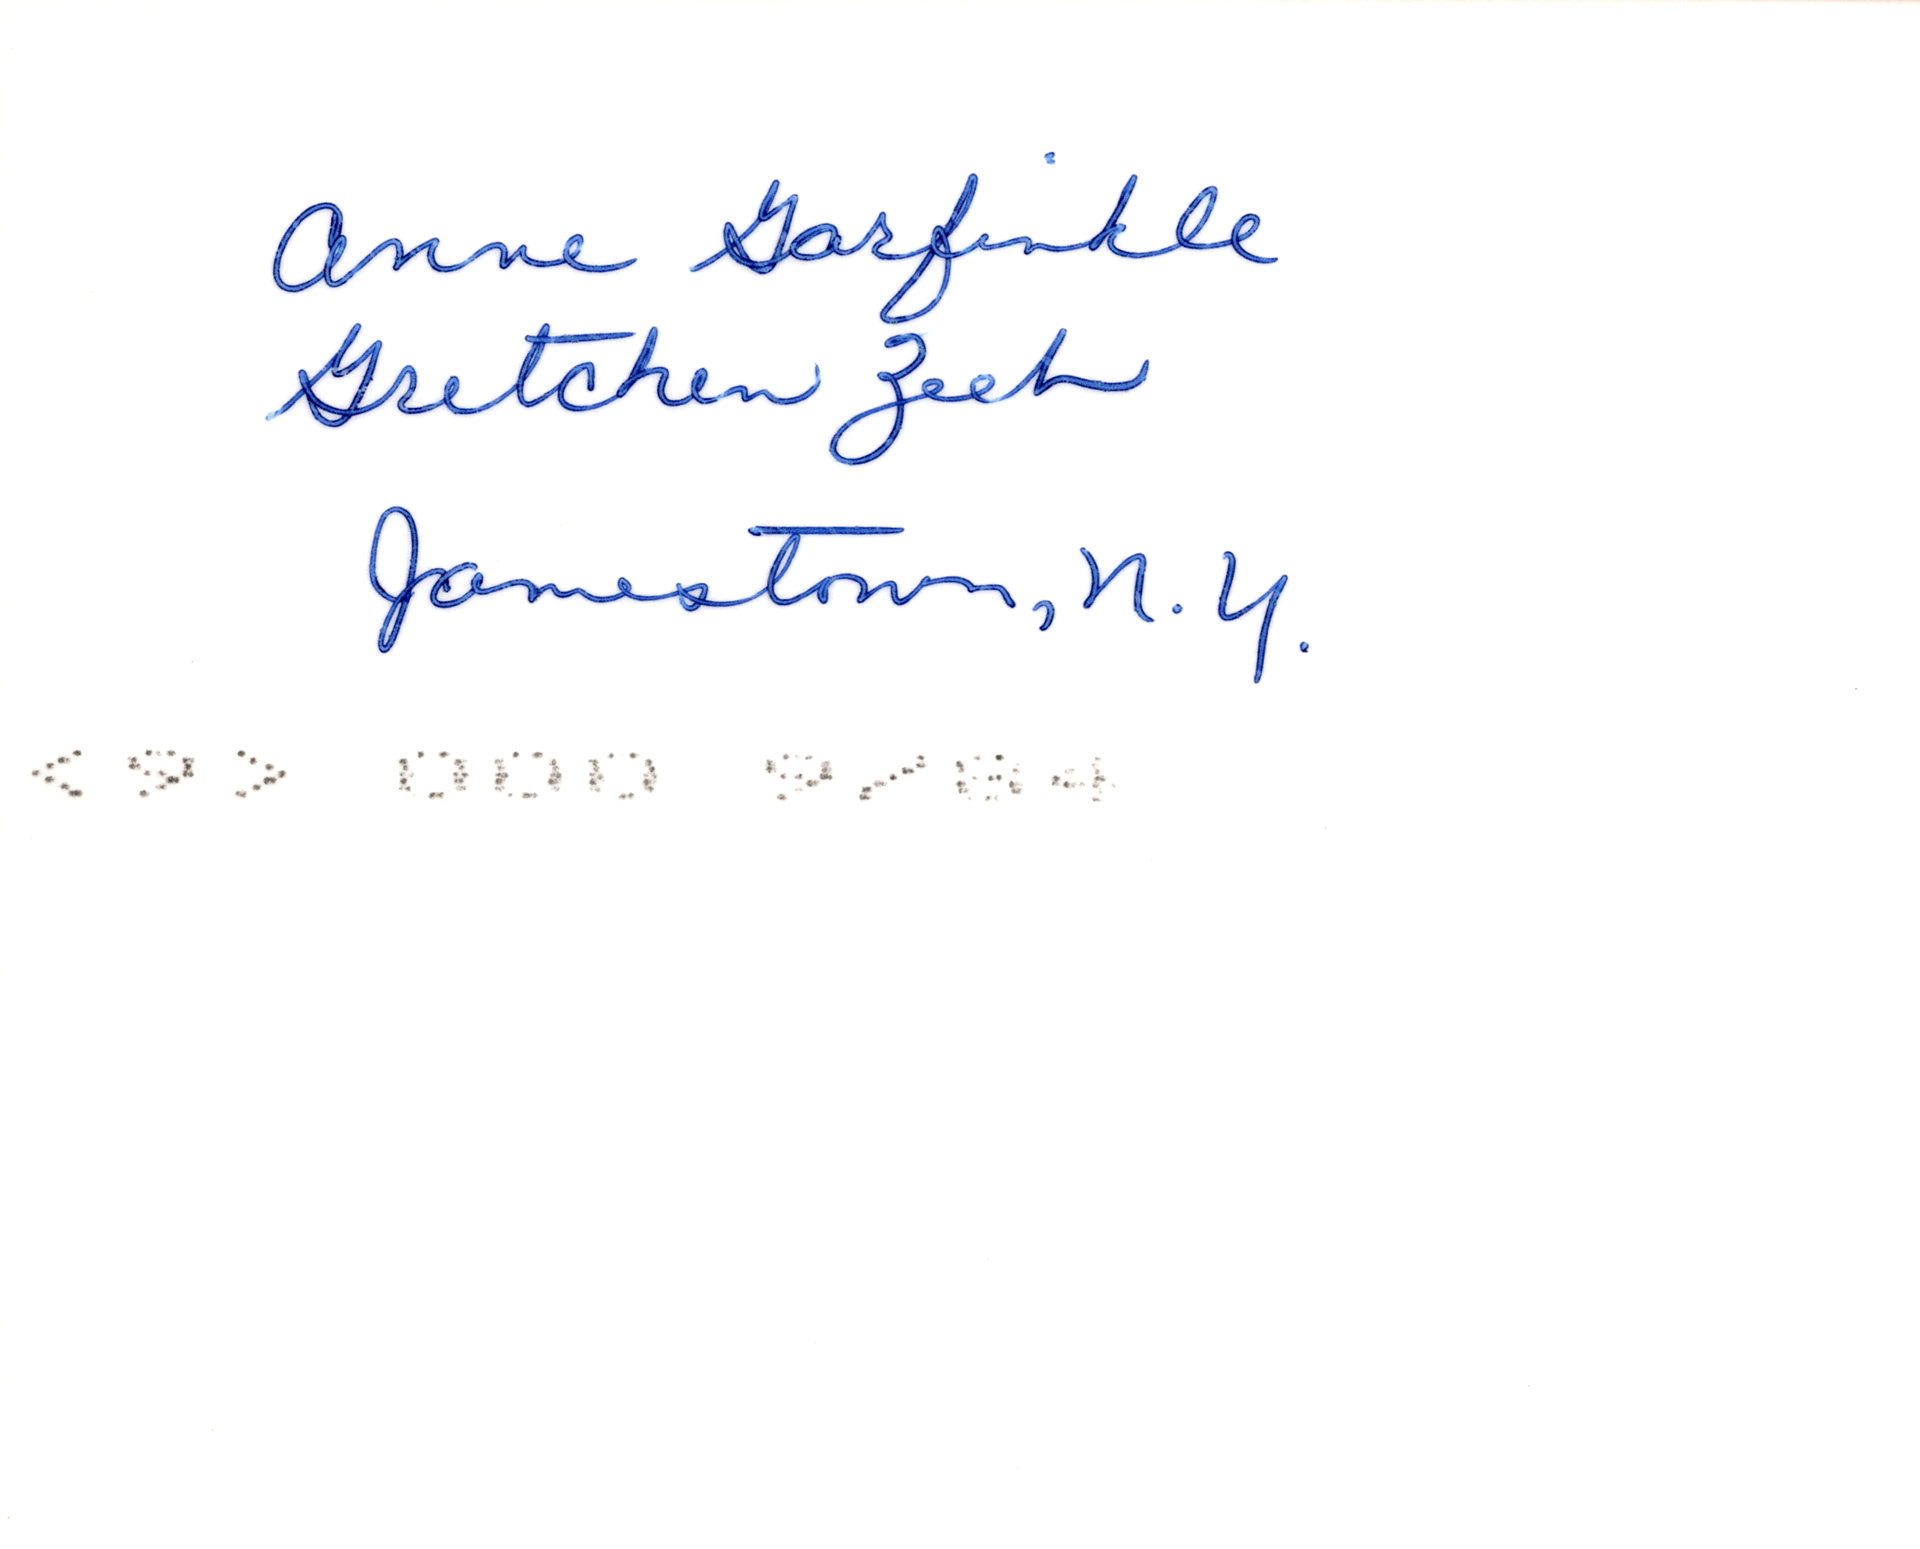 Anne Garfinkle
Gretchen Zeeh
Jamestown, N.Y.
< 9 > 000 9/84